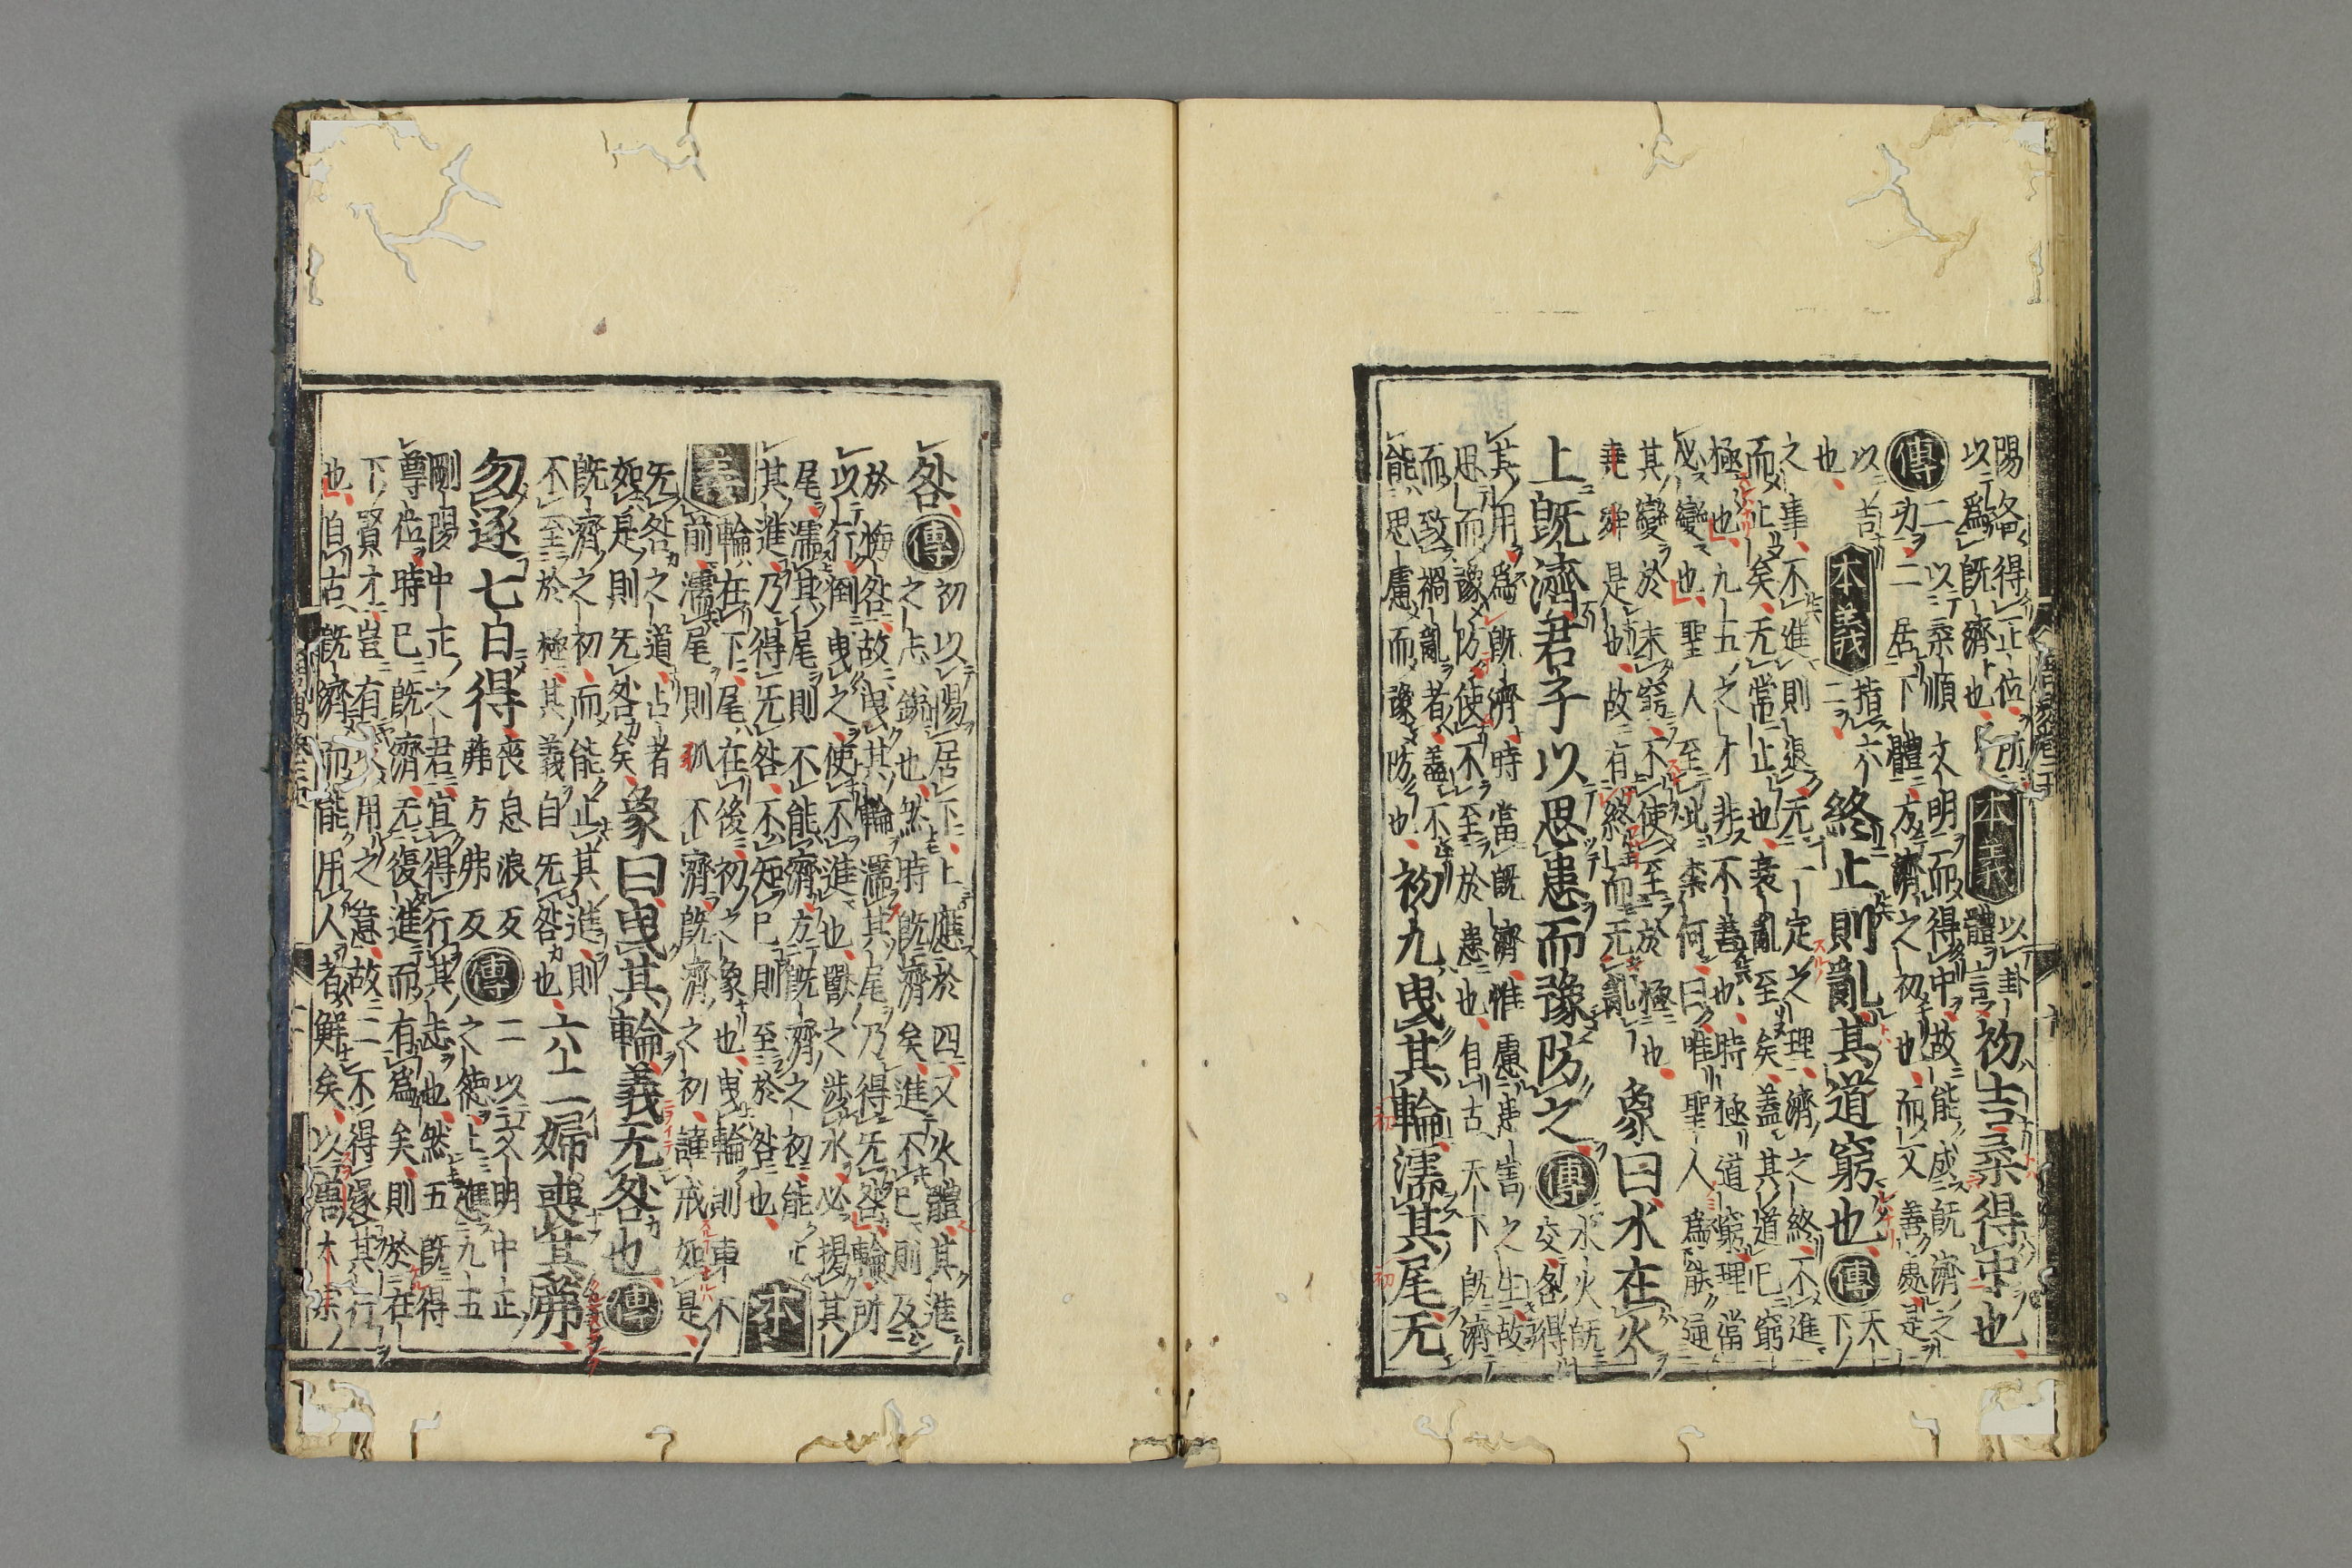 陽各得正位所
以爲既濟也本義以卦體言初吉柔得中也
傳二以柔順文明而得中故能成既濟之
功二居下體方濟之初也而又善處是
以吉
也本義指六二終止則亂其道窮也傳天下
之事不進則退无一定之理濟之終不進
而止矣无常止也衰亂至矣蓋其道已窮
極也九五之才非不善也時極道窮理當
必變也聖人至此柰何曰唯聖人爲能通
其變於未窮不使至於極也
堯舜是也故有終而无亂象曰水在火
上既濟君子以思患而豫防之傳水火既交各得
其用爲既濟時當既濟惟慮患害之生故
思而豫防使不至於患也自古天下既濟
而致禍亂者蓋不
能思慮而豫防也初九曳其輪濡其尾无
咎傳初以陽居下上應於四又火體其進
之志銳也然時既濟矣進不已則及
於悔咎故曳其輪濡其尾乃得无咎輪所
以行倒曳之使不進也獸之涉水必揭其
尾濡其尾則不能濟方既濟之初能止
其進乃得无咎不知已則至於咎也本
義輪在下尾在後初之象也曳輪則車不
前濡尾則狐不濟既濟之初謹戒如是
无咎之道占者
如是則无咎矣象曰曳其輪義无咎也傳
既濟之初而能止其進則
不至於極其義自无咎也六二婦喪其茀
勿逐七日得喪息浪反茀方弗反傳二以文明中正
之德上進九五
剛陽中正之君宜得行其志也然五既得
尊位時已既濟无復進而有爲矣則於在
下賢才豈有求用之意故二不得遂其行
也自古既濟而能用人者鮮矣以唐太宗